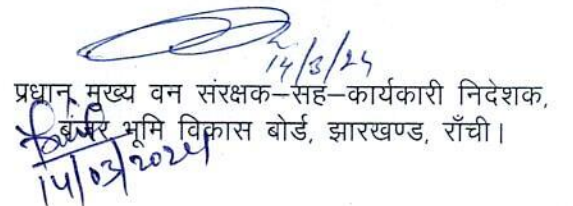 14/3/24
प्रधान मुख्य वन संरक्षक–सह–कार्यकारी निदेशक,
बंजर भूमि विकास बोर्ड, झारखण्ड, राँची।
14/03/2024